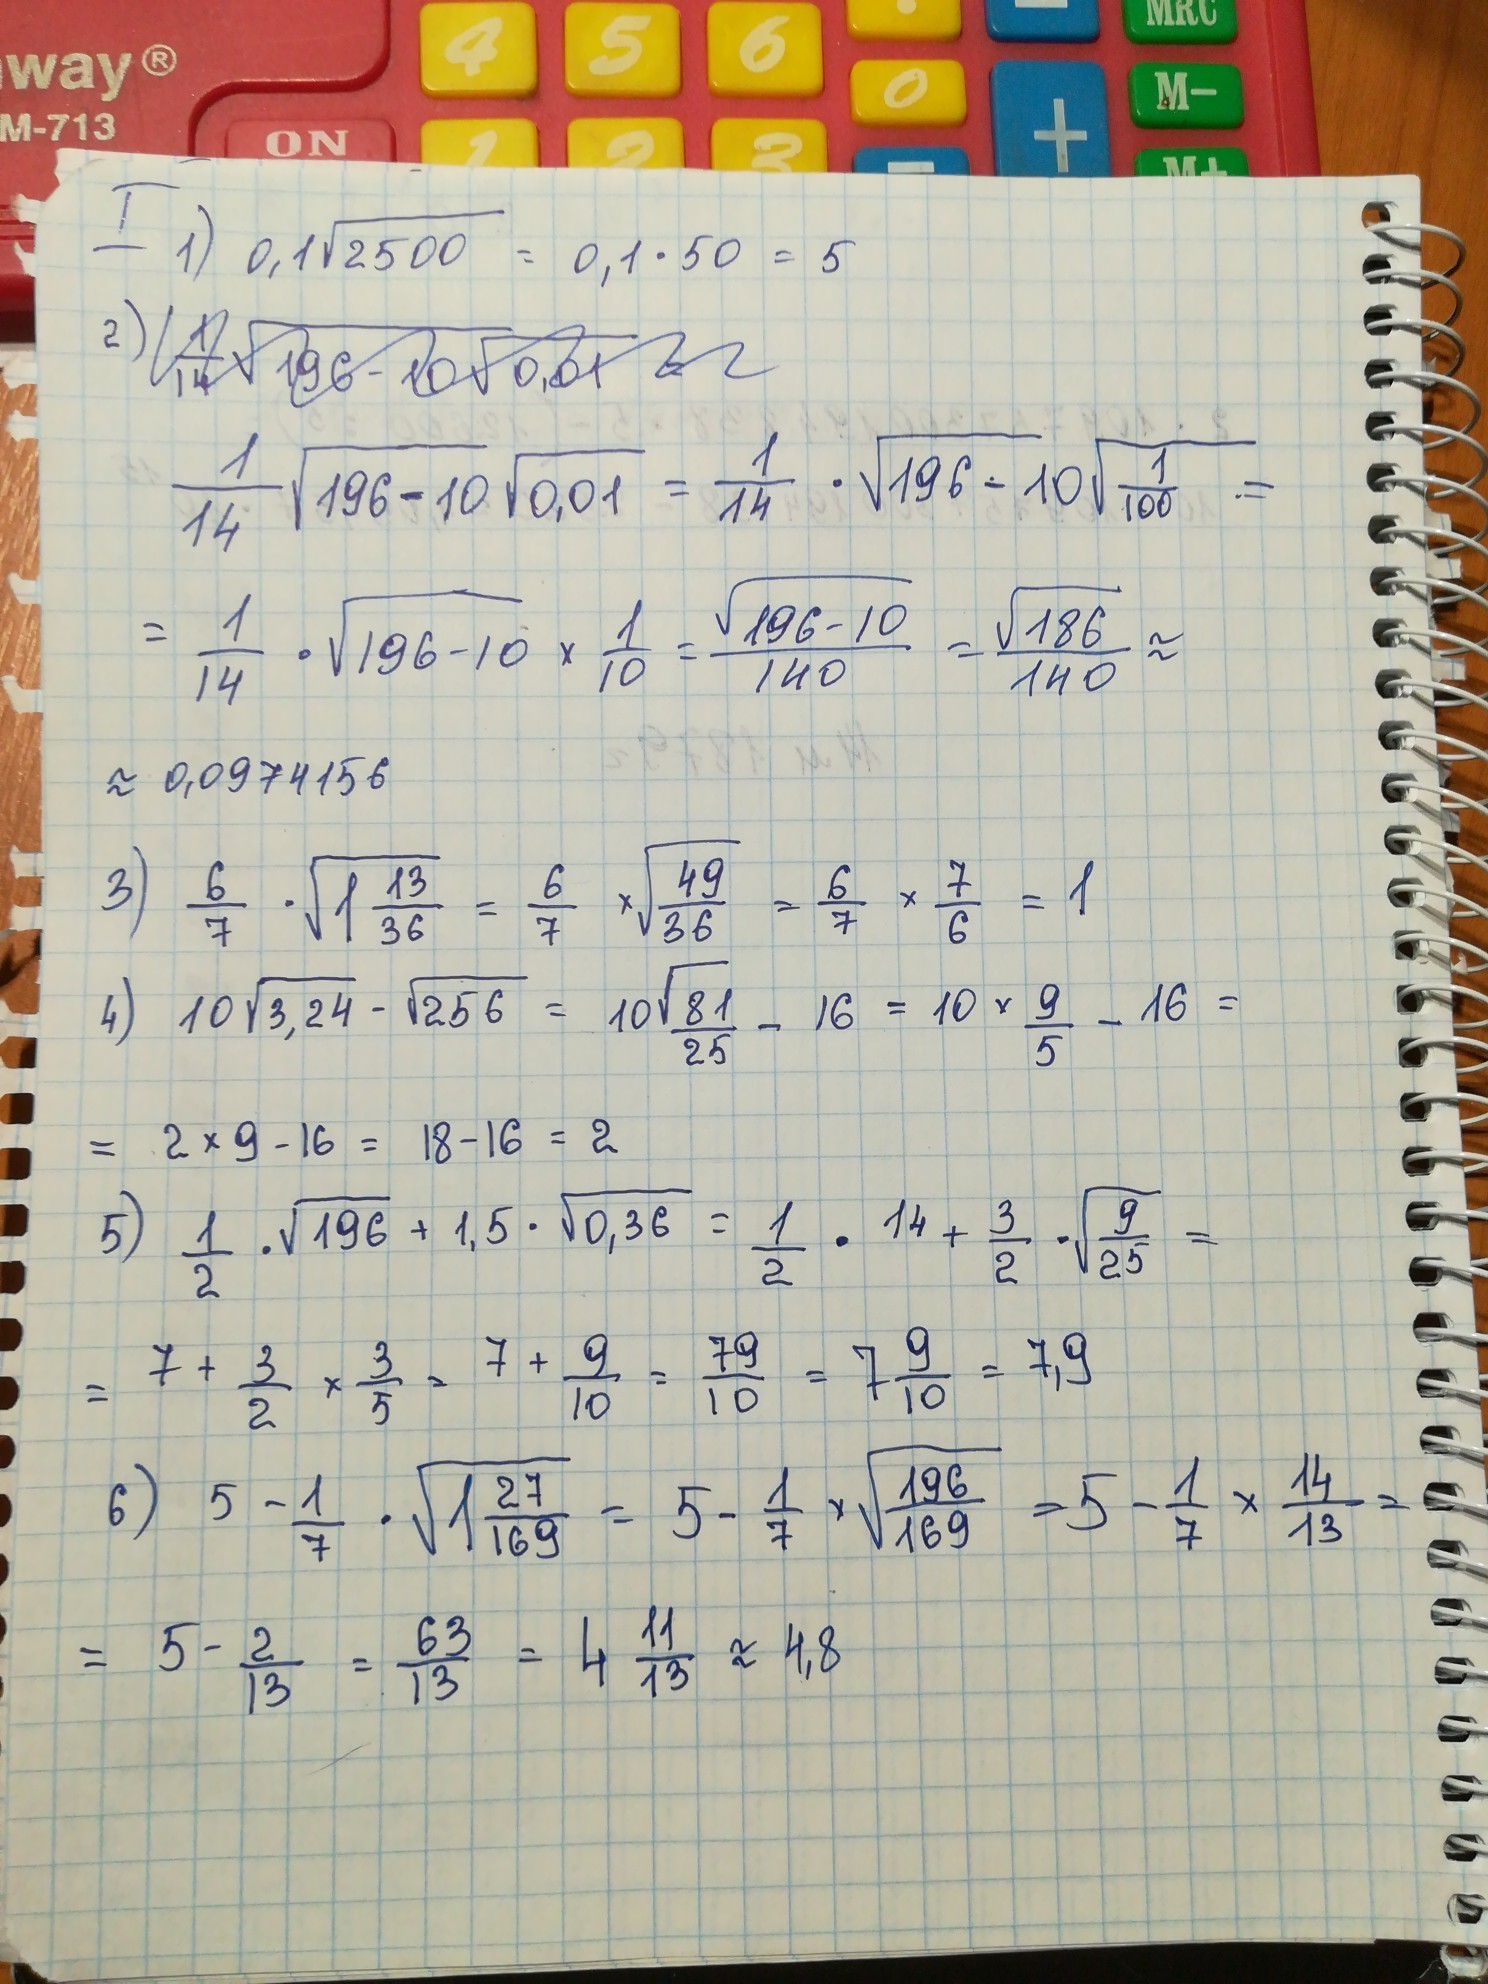 4 5 6 MRC
way® 0 + M-
M-713 ON 1 2 3 M+
I 1) 0,1√2500 = 0,1 · 50 = 5
2)
1/14 √196-10 √0,01 = 1/14 · √196-10 √1/100 =
= 1/14 · √196-10 × 1/10 = √196-10/140 = √186/140 ≈
≈ 0,0974156
3) 6/7 · √1 13/36 = 6/7 × √49/36 = 6/7 × 7/6 = 1
4) 10√3,24 - √256 = 10√81/25 - 16 = 10 × 9/5 - 16 =
= 2 × 9 - 16 = 18 - 16 = 2
5) 1/2 · √196 + 1,5 · √0,36 = 1/2 · 14 + 3/2 · √9/25 =
= 7 + 3/2 × 3/5 = 7 + 9/10 = 79/10 = 7 9/10 = 7,9
6) 5 - 1/7 · √1 27/169 = 5 - 1/7 × √196/169 = 5 - 1/7 × 14/13 =
= 5 - 2/13 = 63/13 = 4 11/13 ≈ 4,8